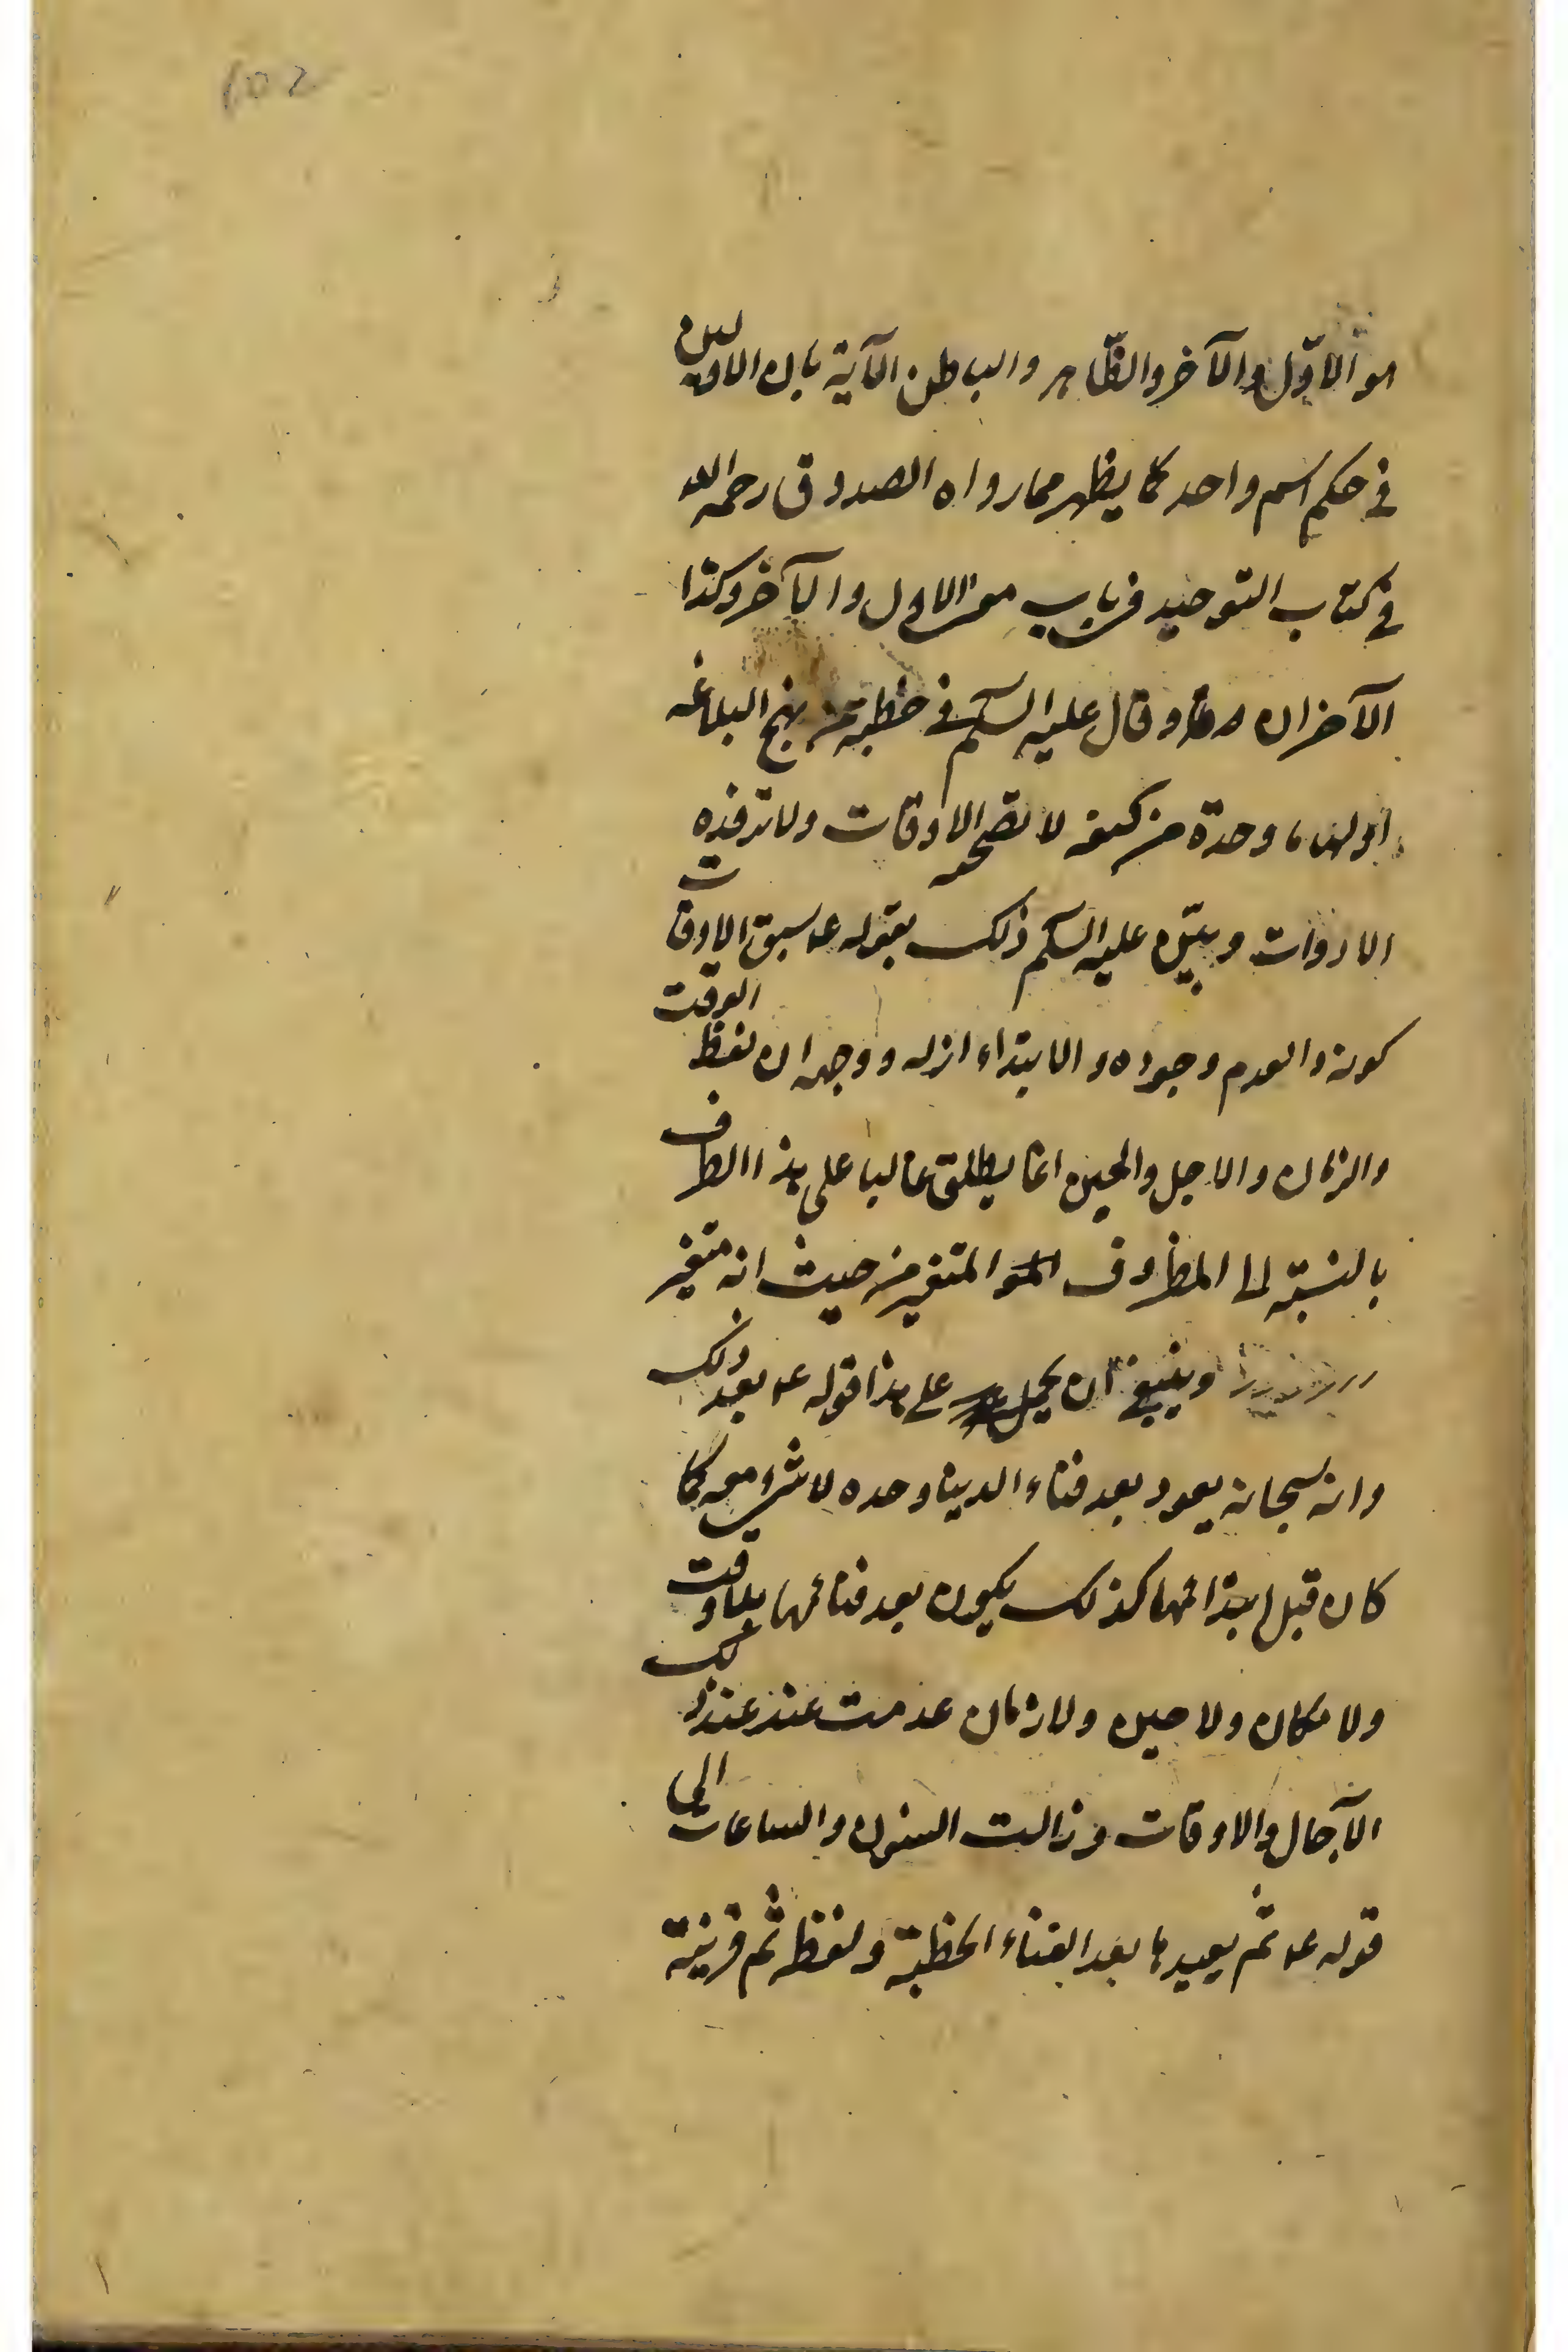 هو الاوّل والآخر والظّاهر والباطن الآية بان الاولين
في حكم اسم واحد كما يظهر مما رواه الصدوق رحمه الله
في كتاب التوحيد في باب معنى الاول والآخر وكذا
الآخران وقال عليه السلم في خطبة من نهج البلاغه
اولها ما وحده من كيفه لا تصحبه الاوقات ولا ترفده
الادوات وبيّن عليه السلم ذلك بقوله ع سبق الاوقات
كونه والعدم وجوده والابتداء ازله ووجهه ان لفظ الوقت
والزمان والاجل والحين انما يطلق غالبا على هذا الظرف
بالنسبة الى المظروف المتغير من حيث انه متغير
وينبغي ان يحمل على هذا قوله ع بعد ذلك
وانه سبحانه يعود بعد فناء الدنيا وحده لا شيء معه كما
كان قبل ابتدائها كذلك يكون بعد فنائها بلا وقت
ولا مكان ولا حين ولا زمان عدمت عند عند ذلك
الآجال والاوقات وزالت السنون والساعات الى
قوله ع ثم يعيدها بعد الفناء الخطبة ولفظ ثم قرينة